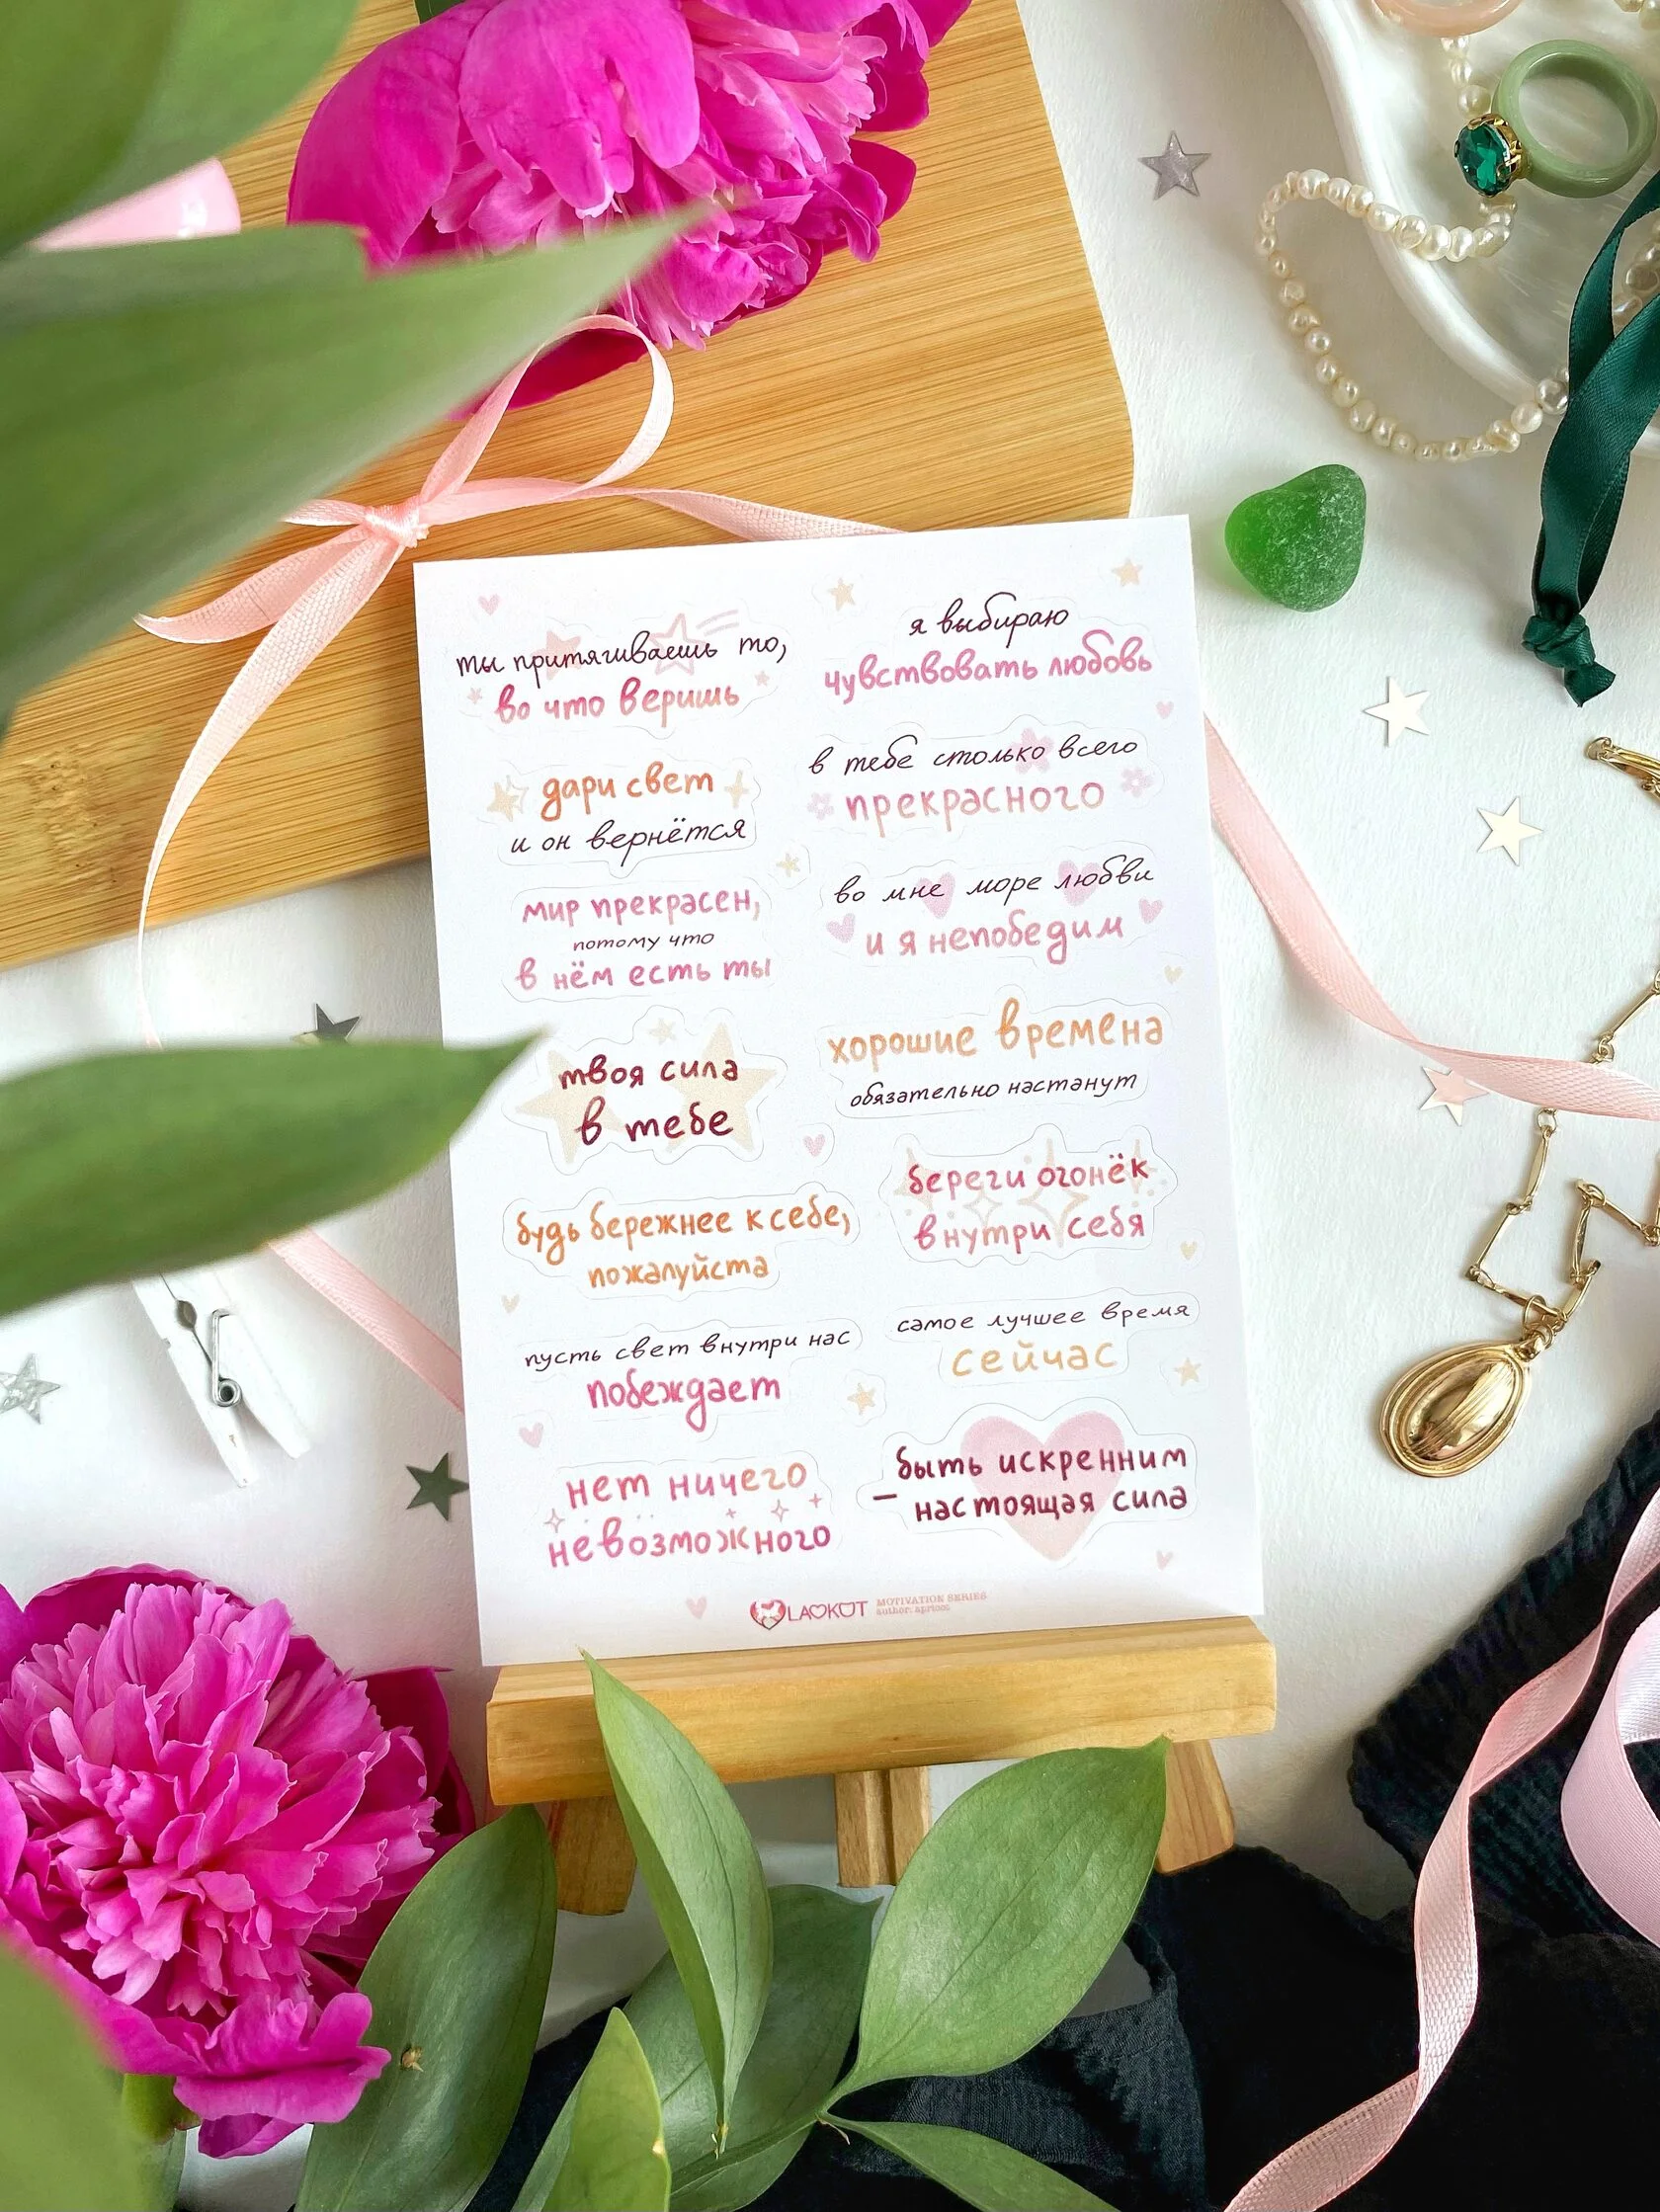 ты притягиваешь то,
во что веришь
дари свет
и он вернётся
мир прекрасен,
потому что
в нём есть ты
твоя сила
в тебе
будь бережнее к себе,
пожалуйста
пусть свет внутри нас
побеждает
нет ничего
невозможного
я выбираю
чувствовать любовь
в тебе столько всего
прекрасного
во мне море любви
и я непобедим
хорошие времена
обязательно настанут
береги огонёк
внутри себя
самое лучшее время
сейчас
быть искренним
– настоящая сила
LAOKOT
MOTIVATION SERIES
author: apricot